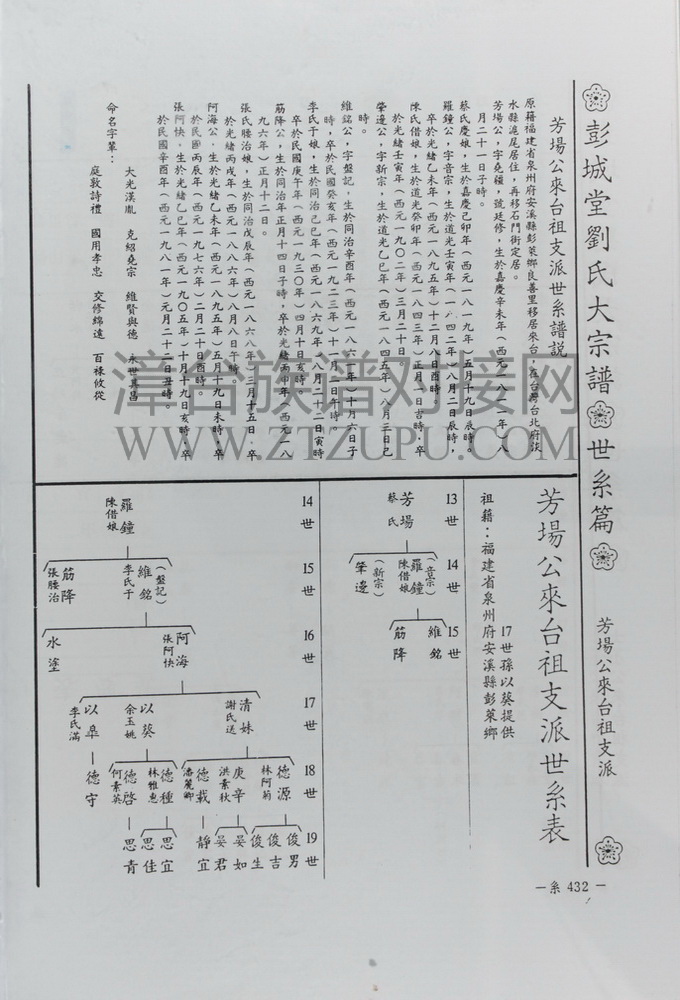 彭城堂劉氏大宗譜 世系篇 芳場公來台祖支派
芳場公來台祖支派世系譜說
原籍福建省泉州府安溪縣彭萊鄉良善里移居來台，在台灣台北府淡
水縣滬尾居住，再移石門街定居。
芳場公，字堯疆，號廷修，生於嘉慶辛未年（西元一八一一年）八
月二十一日子時。
蔡氏慶娘，生於嘉慶己卯年（西元一八一九年）五月十九日辰時。
羅鐘公，字音宗，生於道光壬寅年（一八四二年）八月二日辰時，
卒於光緒乙未年（西元一八九五年）十二月八日酉時。
陳氏借娘，生於道光癸卯年（西元一八四三年）正月八日吉時，卒
於光緒壬寅年（西元一九〇二年）三月二十日。
肇邊公，字新宗，生於道光乙巳年（西元一八四五年）八月三日巳
時。
維銘公，字盤記，生於同治辛酉年（西元一八六一年）十月六日子
時，卒於民國癸亥年（西元一九二三年）十一月二日午時。
李氏于娘，生於同治己巳年（西元一八六九年）八月二十二日寅時
卒於民國庚午年（西元一九三〇年）四月十日亥時。
筋降公，生於同治年正月十四日子時，卒於光緒丙申年（西元一八
九六年）正月十二日。
張氏腰治娘，生於同治戊辰年（西元一八六八年）三月十五日，卒
於光緒丙戌年（西元一八八六年）八月八日午時。
阿海公，生於光緒乙未年（西元一八九五年）五月十九日未時，卒
於民國丙辰年（西元一九七六年）二月二十日酉時。
張阿快，生於光緒乙巳年（西元一九〇五年）十月十九日亥時，卒
於民國辛酉年（西元一九八一年）元月二十二日丑時。
命名字輩：
大光漢胤 克紹堯宗 維賢與德 永世其昌
庭敦詩禮 國用孝忠 交修綿遠 百祿攸從
芳場公來台祖支派世系表
17世孫以葵提供
祖籍：福建省泉州府安溪縣彭萊鄉
13世 14世 15世
芳場
蔡氏
（音宗）
羅鐘
陳借娘
（新宗）
肇邊
維銘
筋降
14世 15世 16世 17世 18世 19世
羅鐘
陳借娘
（盤記）
維銘
李氏于
筋降
張腰治
阿海
張阿快
水塗
清妹
謝氏送
以葵
余玉姚
以皐
李氏滿
德源
林阿菊
庚辛
洪素秋
德載
潘麗卿
德種
林雅惠
德啓
何素英
德守
俊男
俊吉
俊生
晏如
晏君
靜宜
思宜
思佳
思青
－系 432－
漳台族谱对接网
WWW.ZTZUPU.COM